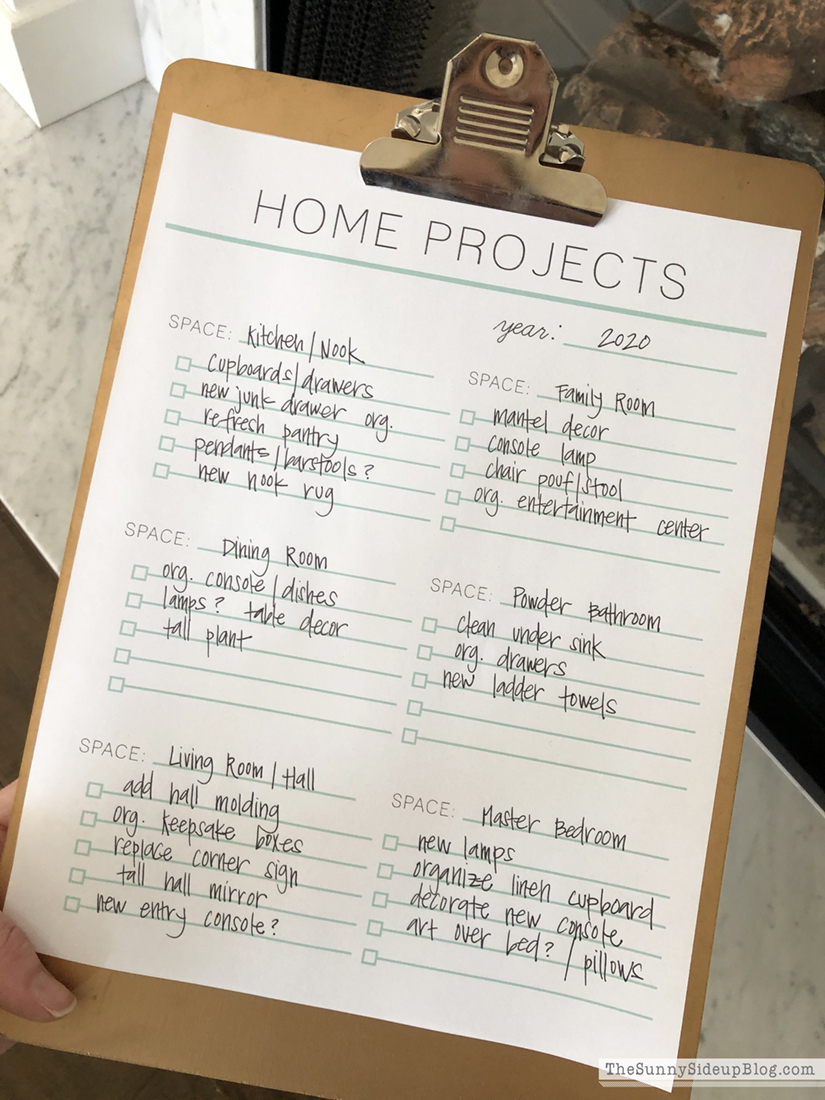 HOME PROJECTS
year: 2020
SPACE: Kitchen/Nook
cupboards/drawers
new junk drawer org.
refresh pantry
pendants/barstools?
new nook rug
SPACE: Dining Room
org. console/dishes
lamps? table decor
tall plant
SPACE: Living Room/Hall
add hall molding
org. keepsake boxes
replace corner sign
tall hall mirror
new entry console?
SPACE: Family Room
mantel decor
console lamp
chair pouf/stool
org. entertainment center
SPACE: Powder Bathroom
clean under sink
org. drawers
new ladder towels
SPACE: Master Bedroom
new lamps
organize linen cupboard
decorate new console
art over bed? / pillows
TheSunnySideupBlog.com